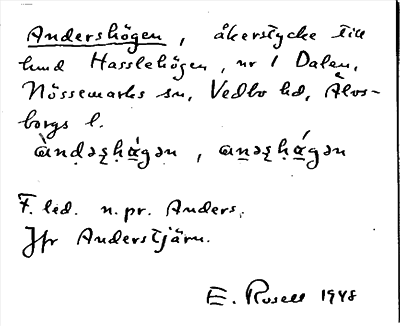 Andershögen, åkerstycke till
hmd Hasslehögen, nr 1 Dalen,
Nössemarks sn, Vedbo hd, Älvs-
borgs l.
F. led. n. pr. Anders.
Jfr Anderstjärn.
E. Rosell 1948